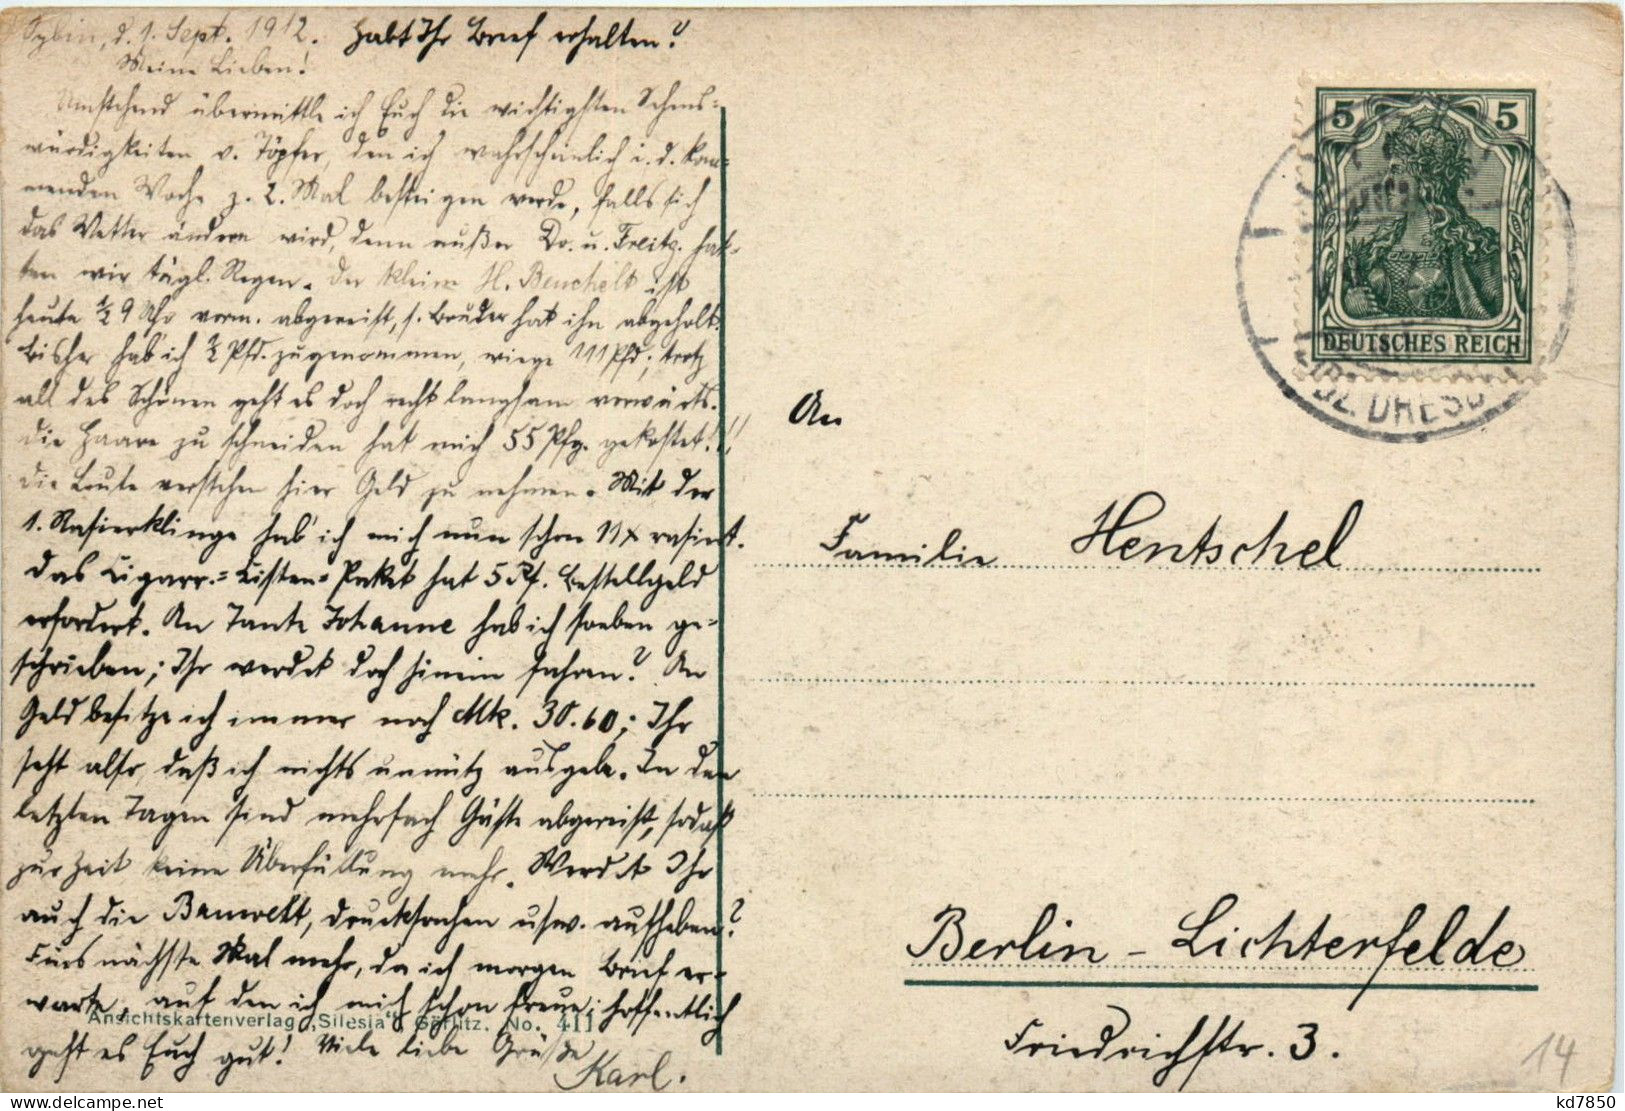 Oybin, d. 1. Sept. 1912. Habt Ihr Brief erhalten?
Meine Lieben!
Umstehend übermittle ich Euch die wichtigsten Sehens-
würdigkeiten v. Töpfer, den ich wahrscheinlich i. d. kom-
menden Woche z. 2. Mal besteigen werde, falls sich
das Wetter ändern wird, denn außer Do. u. Freitg. hat-
ten wir tägl. Regen. Der kleine H. Beuchelt ist
heute ½ 9 Uhr vorm. abgereist, s. Bruder hat ihn abgeholt.
Bisher hab' ich Pfd. zugenommen, wiege 111 Pfd; trotz
all des Schönen geht es doch recht langsam vorwärts.
Die Haare zu schneiden hat mich 55 Pfg. gekostet!!!
Die Leute verstehen hier Geld zu nehmen. Mit der
1. Rasierklinge hab' ich mich nun schon 11x rasiert.
Das Zigarr.=Kisten=Paket hat 5 Pf. Bestellgeld
erfordert. An Tante Johanne hab ich soeben ge-
schrieben; Ihr werdet doch hinein fahren? An
Geld besitze ich immer noch Mk. 30.60; Ihr
seht also, daß ich nichts unnütz ausgebe. In den
letzten Tagen sind mehrfach Gäste abgereist, sodaß
zur Zeit keine Überfüllung mehr. Werdet Ihr
auch die Bauwelt, Drucksachen usw. aufheben?
Fürs nächste Mal mehr, da ich morgen Brief er-
warte, auf den ich mich schon freue; hoffentlich
geht es Euch gut! Viele liebe Grüße
Karl.
Ansichtskartenverlag „Silesia“, Görlitz. No. 411
5 5
DEUTSCHES REICH
BZ. DRESD
An
Familie Hentschel
Berlin - Lichterfelde
Friedrichstr. 3.
14
kd7850